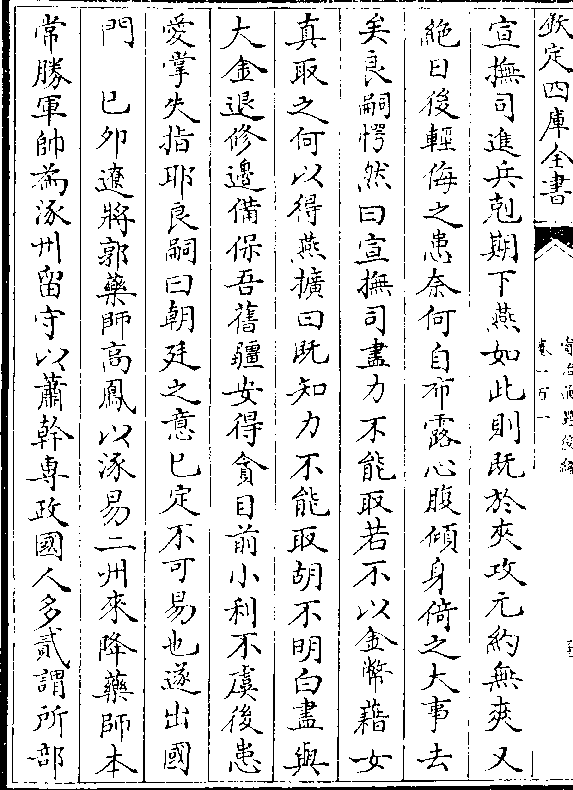 欽定四庫全書
資治通鑑後編
卷一百一
宣撫司進兵剋期下燕如此則既於夾攻元約無爽又
絶日後輕侮之患奈何自布露心腹傾身倚之大事去
矣良嗣愕然曰宣撫司盡力不能取若不以金幣藉女
真取之何以得燕擴曰既知力不能取胡不明白盡與
大金退修邊備保吾舊疆安得貪目前小利不虞後患
愛掌失指耶良嗣曰朝廷之意已定不可易也遂出國
門　已卯遼將郭藥師高鳳以涿易二州來降藥師本
常勝軍帥為涿州留守以蕭幹専政國人多貳謂所部